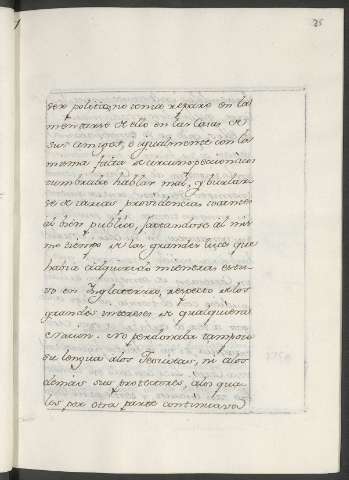 35
ser politico, no tenia reparo en la
mentarse de ello en las casas de
sus amigos, e igualmente con la
misma falta de circunspeccion acos
tumbrado hablar mal, y burlar
se de varias providencias
al bien publico, jactandose al mis
mo tiempo de las grandes luces que
havia adquirido mientras estu
vo en Inglaterra, respecto a los
grandes intereses de qualquiera
Nacion. No perdonaba tampoco
su lengua a los Jesuitas, ni a los
demas sus protectores, a los qua
les por otra parte continuava